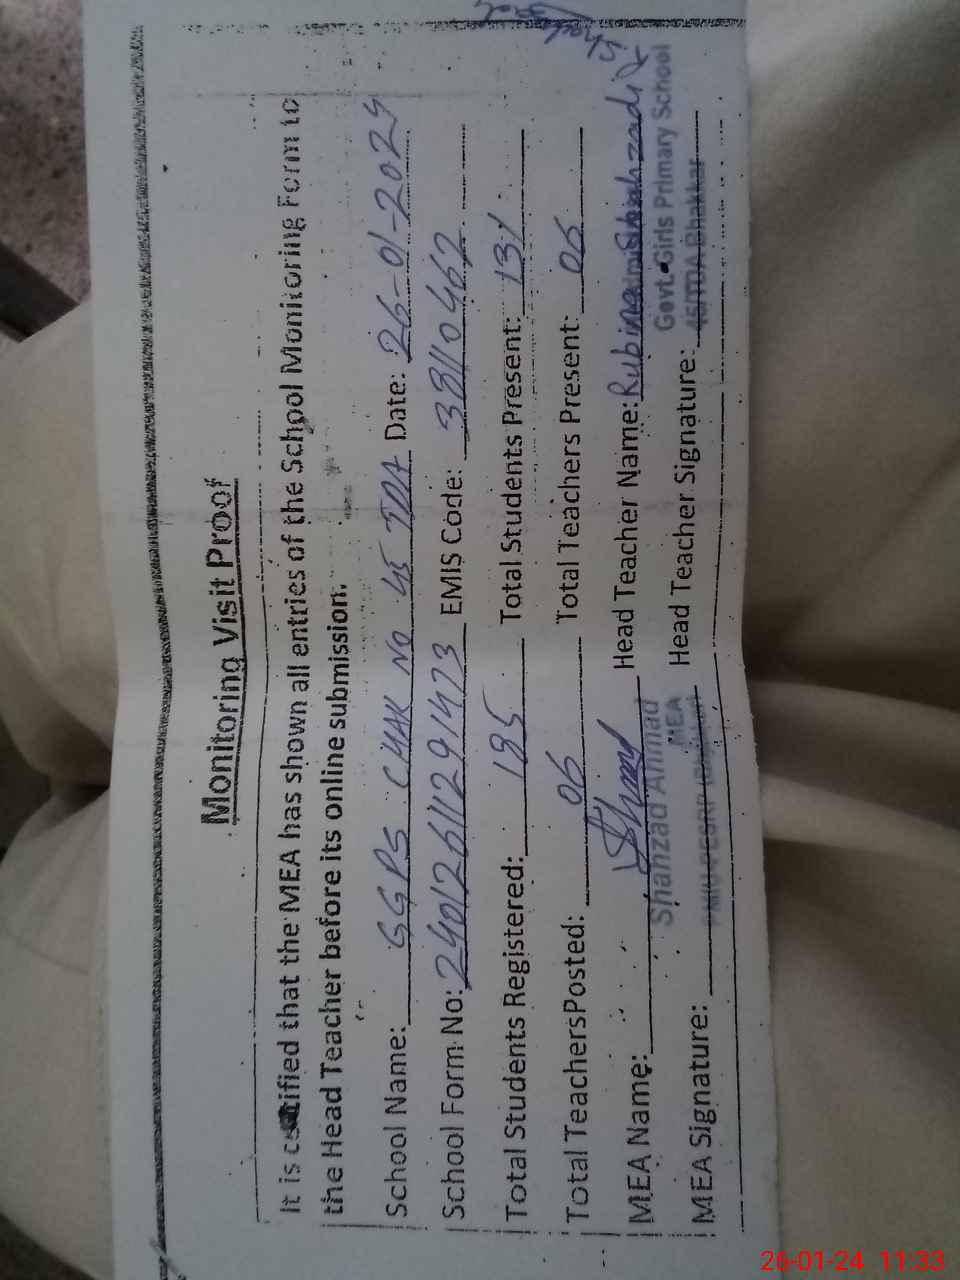 Monitoring Visit Proof
It is certified that the MEA has shown all entries of the School Monitoring Form to
the Head Teacher before its online submission.
School Name: GGPS CHAK NO 45 TDA Date: 26-01-2024
School Form No: 24012611291473 EMIS Code: 38110462
Total Students Registered: 185 Total Students Present: 131
Total TeachersPosted: 06 Total Teachers Present: 06
MEA Name: Head Teacher Name: Rubina Shahzadi
Shahzad Ahmad Govt. Girls Primary School
MEA
MEA Signature: Head Teacher Signature: 45/TDA Bhakkar
PMIU-PESRP
26-01-24 11:33